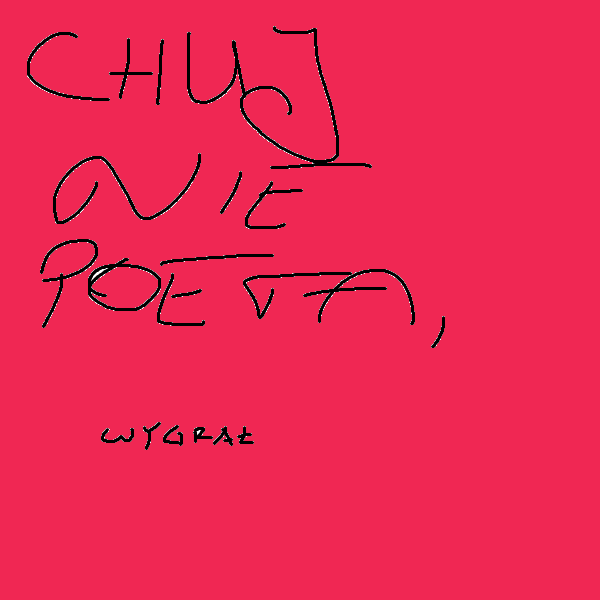 CHUJ
NIE
POETA,
WYGRAŁ